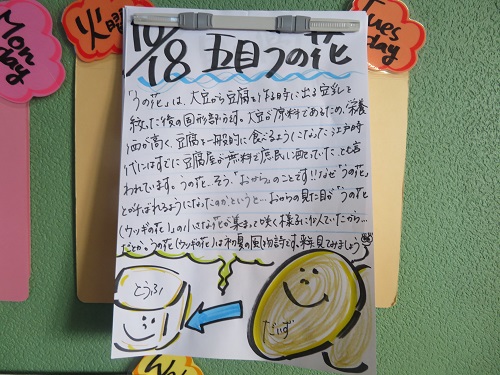 Mon day
火曜
Tues day
10/18 五目うの花
「うの花」は、大豆から豆腐を作る時に出る豆乳を
絞った後の固形部分です。大豆が原料であるため、栄養
価が高く、豆腐を一般的に食べるようになった江戸時
代にはすでに豆腐屋が無料で庶民に配っていたとも言
われています。うの花…そう、「おから」のことです!!なぜ「うの花」
とよばれるようになったのかというと…おからの見た目が「うの花
(ウツギの花)」の小さな花が集まって咲く様子に似ていたから…
だとか。うの花(ウツギの花)は初夏の風物詩です、来年見てみましょう
とうふ
だいず
We